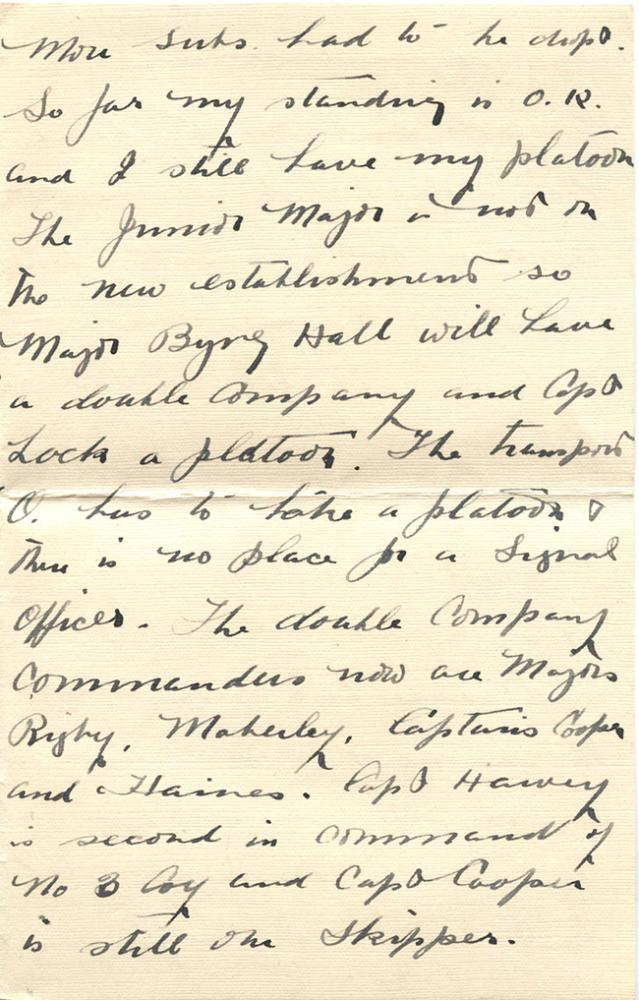 More subs. had to be dropt.
So far my standing is O.K.
and I still have my platoon
The Junior Major is not on
the new establishment so
Major Byng Hall will have
a double company and Capt
Lock a platoon. The transport
O. has to take a platoon &
there is no place for a Signal
Officer. The double Company
Commanders now are Majors
Rigby, Moberley, Captains Cooper
and Haines. Capt Harvey
is second in command of
No 3 Coy and Capt Cooper
is still our Skipper.